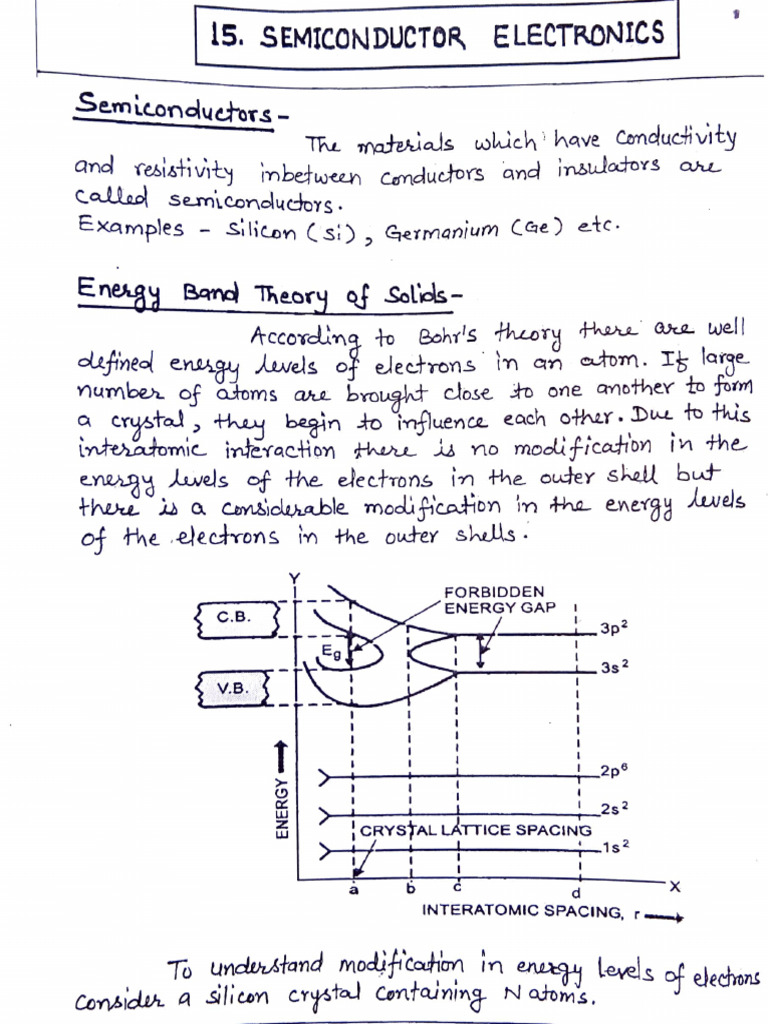 15. SEMICONDUCTOR ELECTRONICS
Semiconductors-
The materials which have conductivity
and resistivity inbetween conductors and insulators are
called semiconductors.
Examples - Silicon (Si), Germanium (Ge) etc.
Energy Band Theory of Solids-
According to Bohr's theory there are well
defined energy levels of electrons in an atom. If large
number of atoms are brought close to one another to form
a crystal, they begin to influence each other. Due to this
interatomic interaction there is no modification in the
energy levels of the electrons in the outer shell but
there is a considerable modification in the energy levels
of the electrons in the outer shells.
Y
FORBIDDEN
ENERGY GAP
C.B.
3p²
Eg
3s²
V.B.
2p⁶
ENERGY
2s²
CRYSTAL LATTICE SPACING
1s²
a b c d X
INTERATOMIC SPACING, r
To understand modification in energy levels of electrons
consider a silicon crystal containing N atoms.